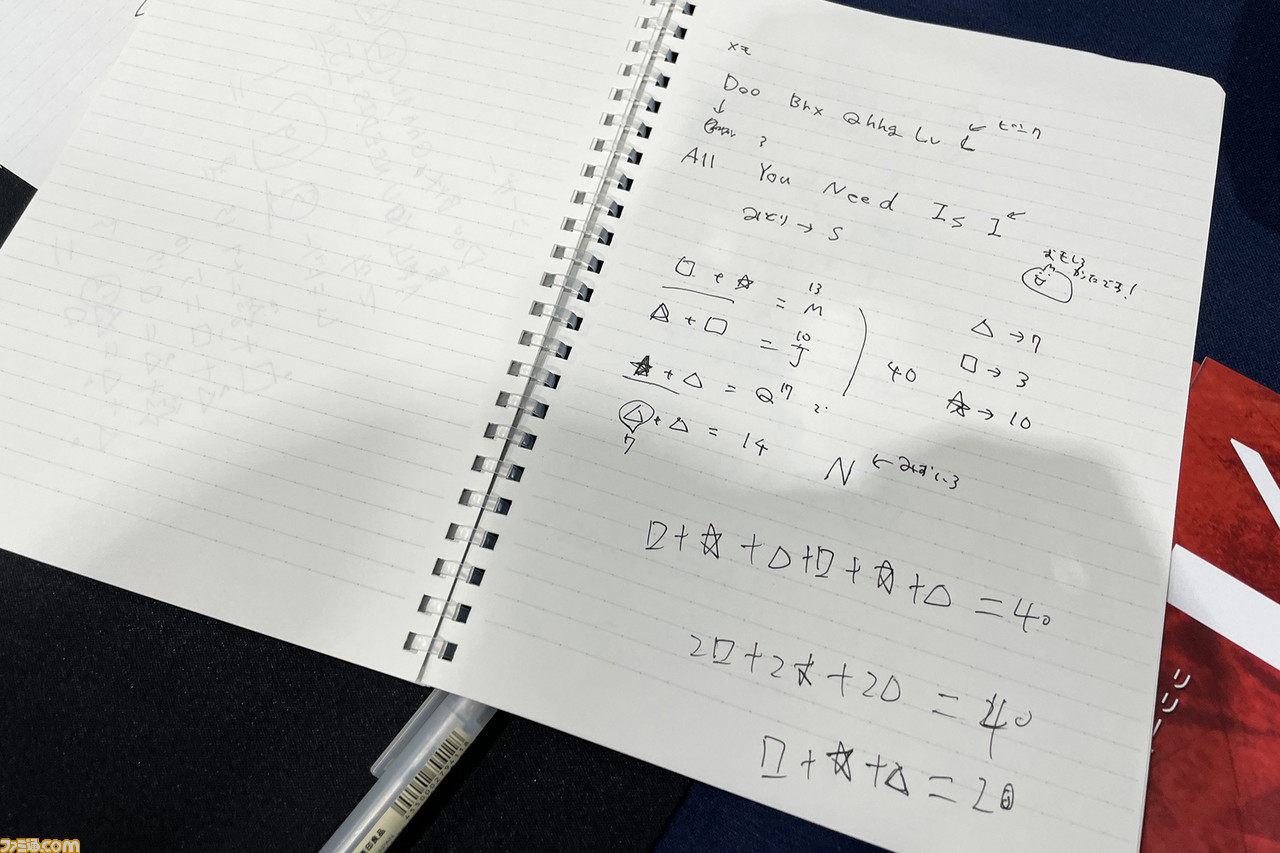 メモ
Doo Bhx Qhhg Lv L ← ピンク
↓
All You Need Is I ←
みどり → S
□ + ☆ = M 13
△ + □ = J 10
☆ + △ = Q 17
△ + △ = 14
7
40
△ → 7
□ → 3
☆ → 10
おもしろ
かったです!
N ← みずいろ
□+☆+△+□+☆+△=40
2□+2☆+2△=40
□+☆+△=20
リリー
ファミ通.com